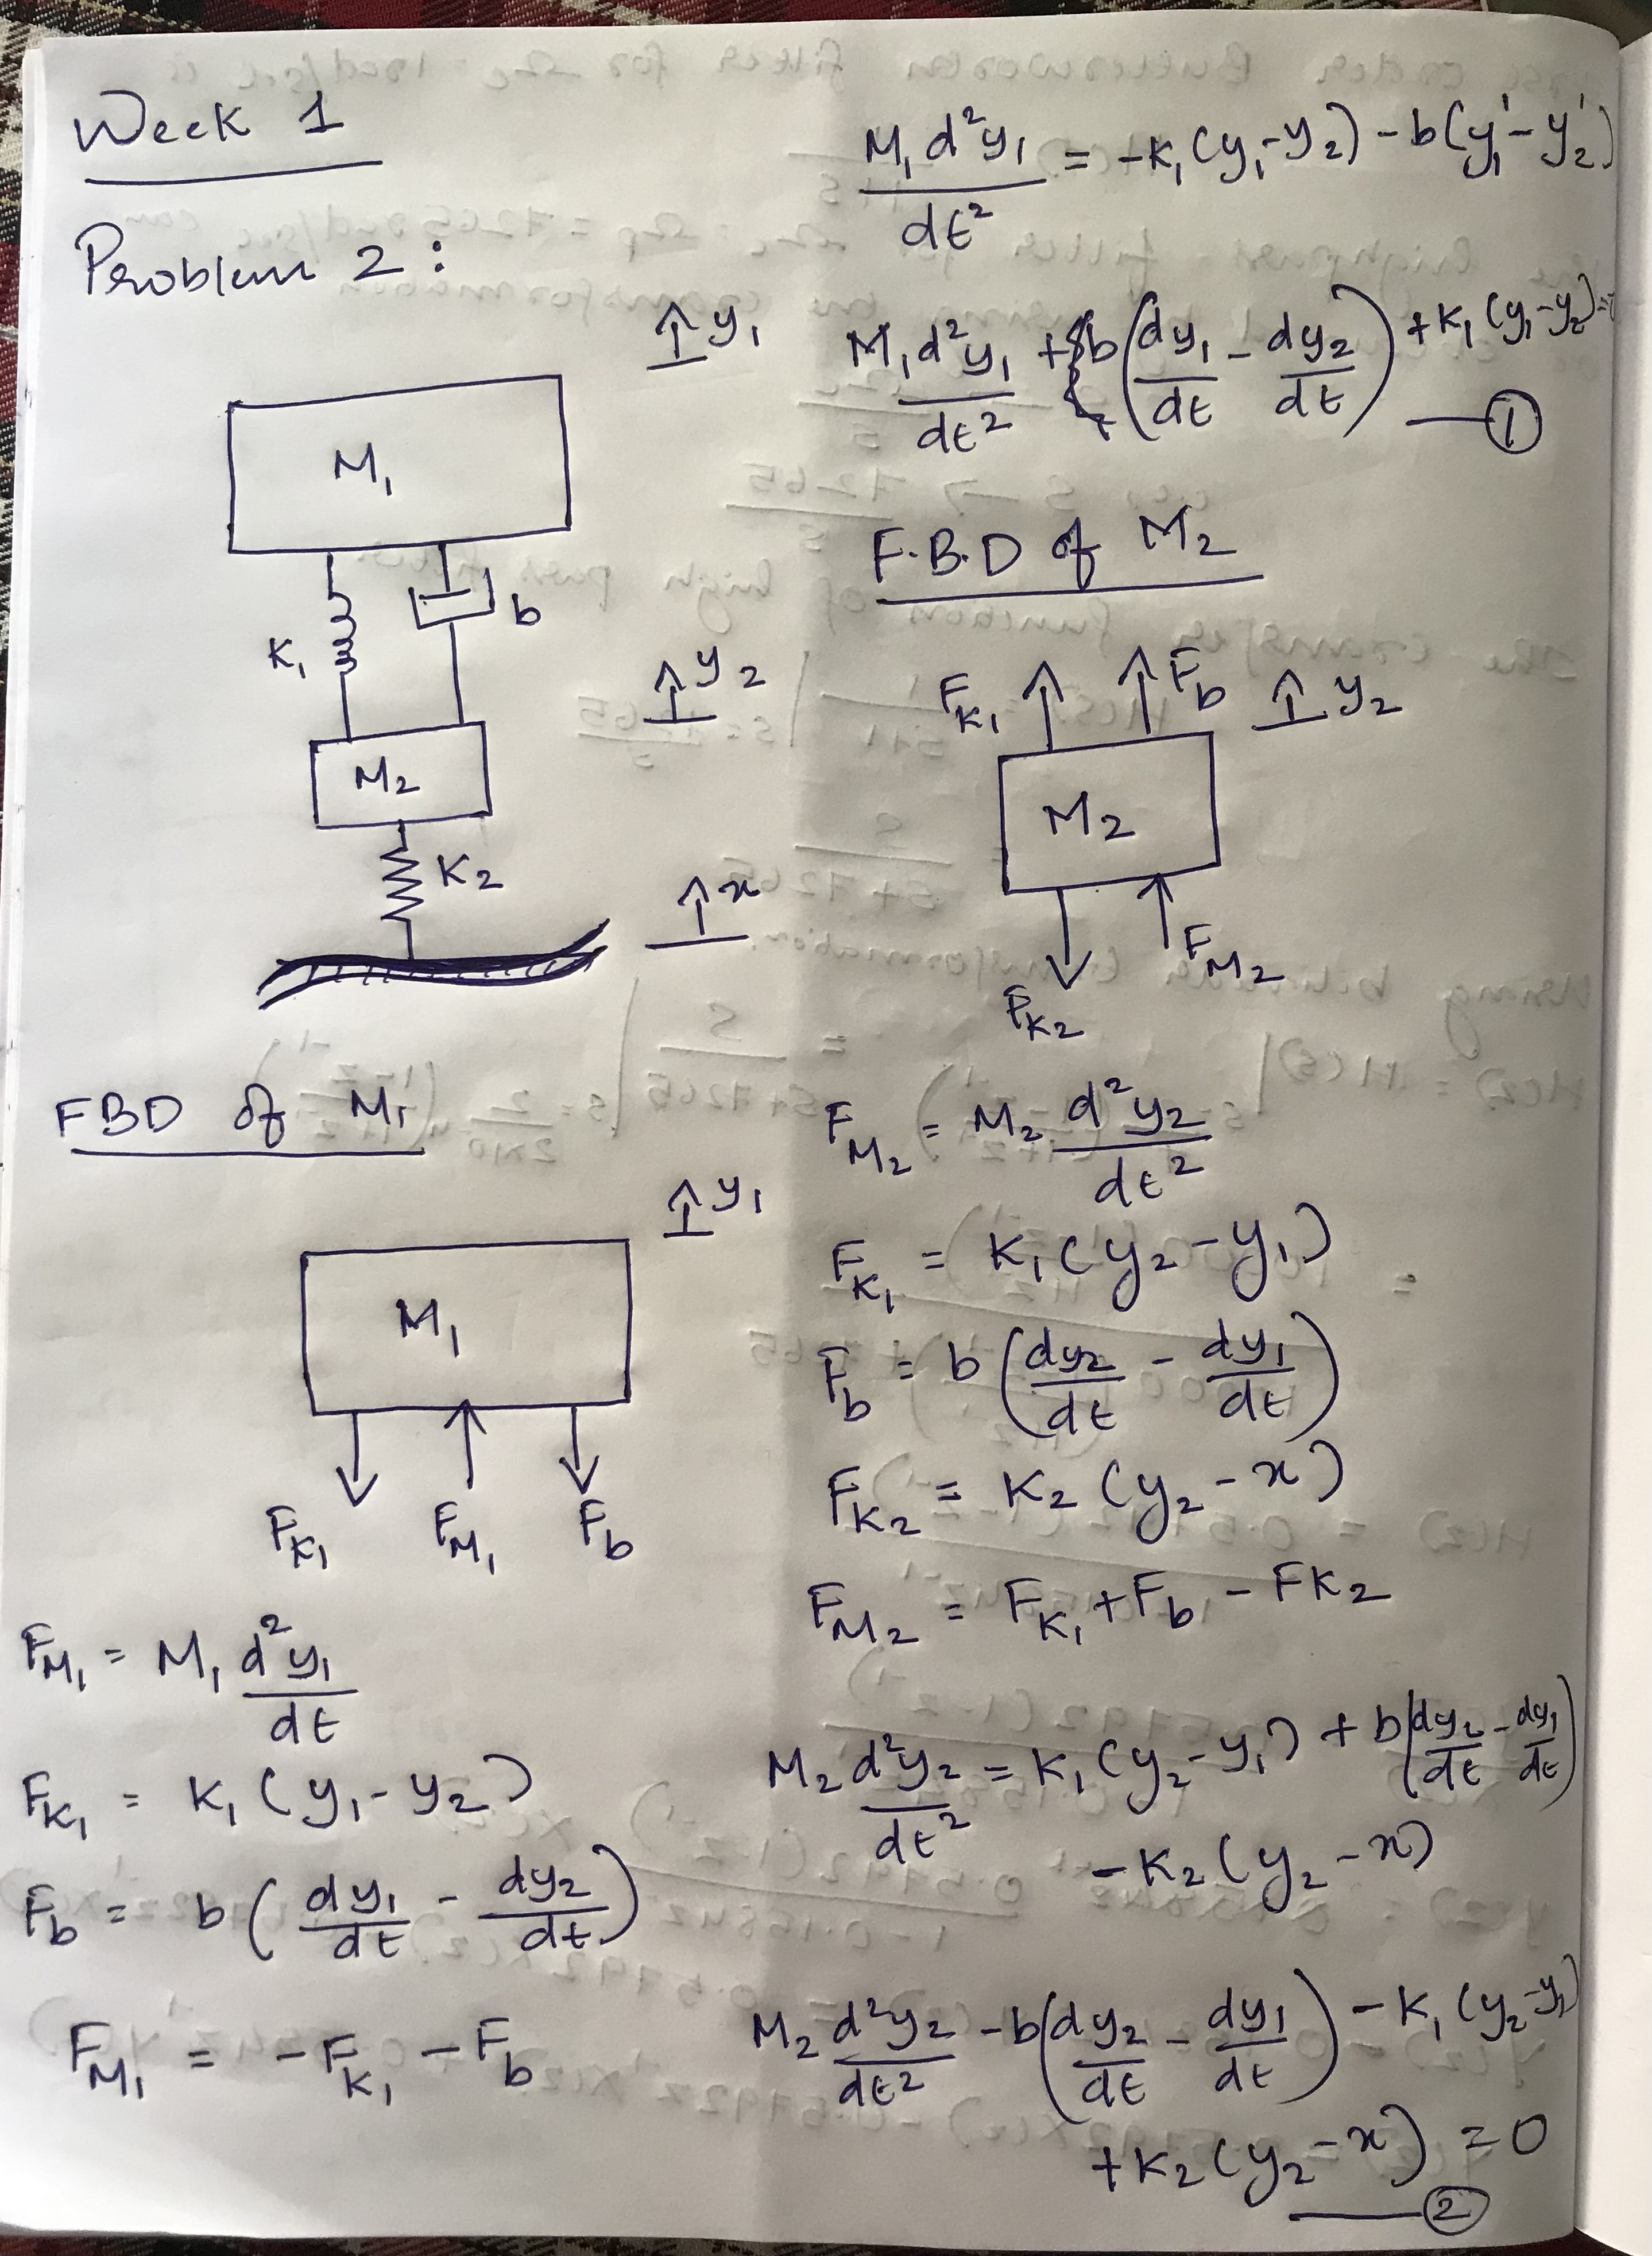 Week 1
Problem 2 :
↑ y₁
M₁
K₁
b
↑ y₂
M₂
K₂
↑ x
FBD of M₁
↑ y₁
M₁
F_K₁ F_M₁ F_b
F_M₁ = M₁ d²y₁/dt
F_K₁ = K₁ (y₁ - y₂)
F_b = b (dy₁/dt - dy₂/dt)
F_M₁ = -F_K₁ - F_b
M₁ d²y₁/dt² = -K₁ (y₁ - y₂) - b(y₁' - y₂')
M₁ d²y₁/dt² + b (dy₁/dt - dy₂/dt) + K₁ (y₁ - y₂) =
— ①
F.B.D of M₂
F_K₁ F_b ↑ y₂
M₂
F_M₂
F_K₂
F_M₂ = M₂ d²y₂/dt²
F_K₁ = K₁ (y₂ - y₁)
F_b = b (dy₂/dt - dy₁/dt)
F_K₂ = K₂ (y₂ - x)
F_M₂ = F_K₁ + F_b - FK₂
M₂ d²y₂/dt² = K₁ (y₂ - y₁) + b (dy₂/dt - dy₁/dt)
- K₂ (y₂ - x)
M₂ d²y₂/dt² - b (dy₂/dt - dy₁/dt) - K₁ (y₂ - y₁)
+ K₂ (y₂ - x) = 0
— ②